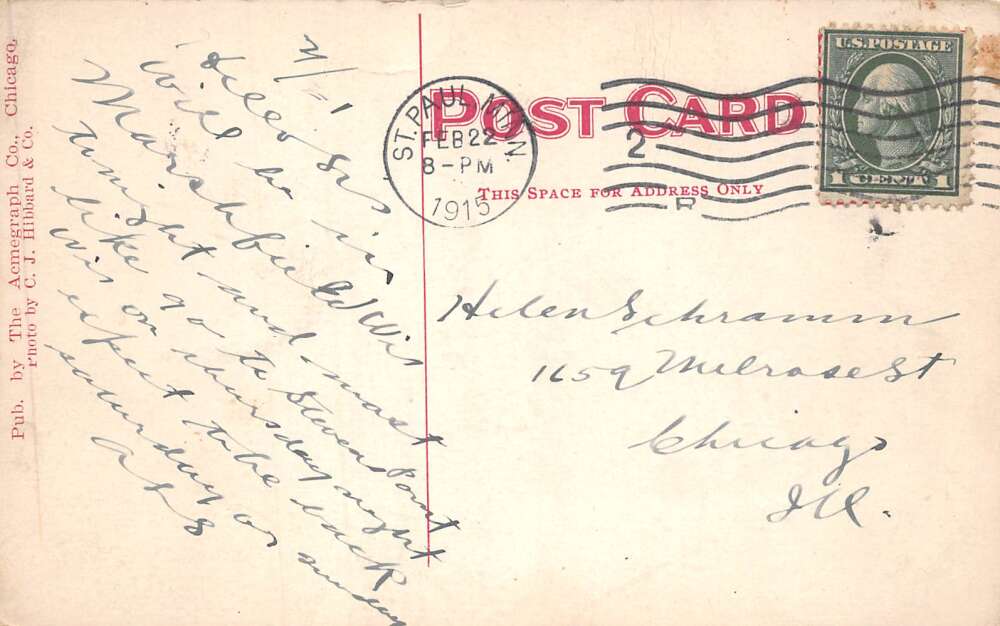 Pub. by The Acmegraph Co., Chicago.
Photo by C. J. Hibbard & Co.
POST CARD
THIS SPACE FOR ADDRESS ONLY
ST. PAUL, MINN
FEB 22
8-PM
1915
2
U.S. POSTAGE
1 CENT 1
Hello Sis
Will be in
Marshfield Wis
tonight and most
like go to Stevens Point
Wis on thursday night
expect to be back
saturday or sunday
Helen Schramm
1659 Melrose St
Chicago
Ill.